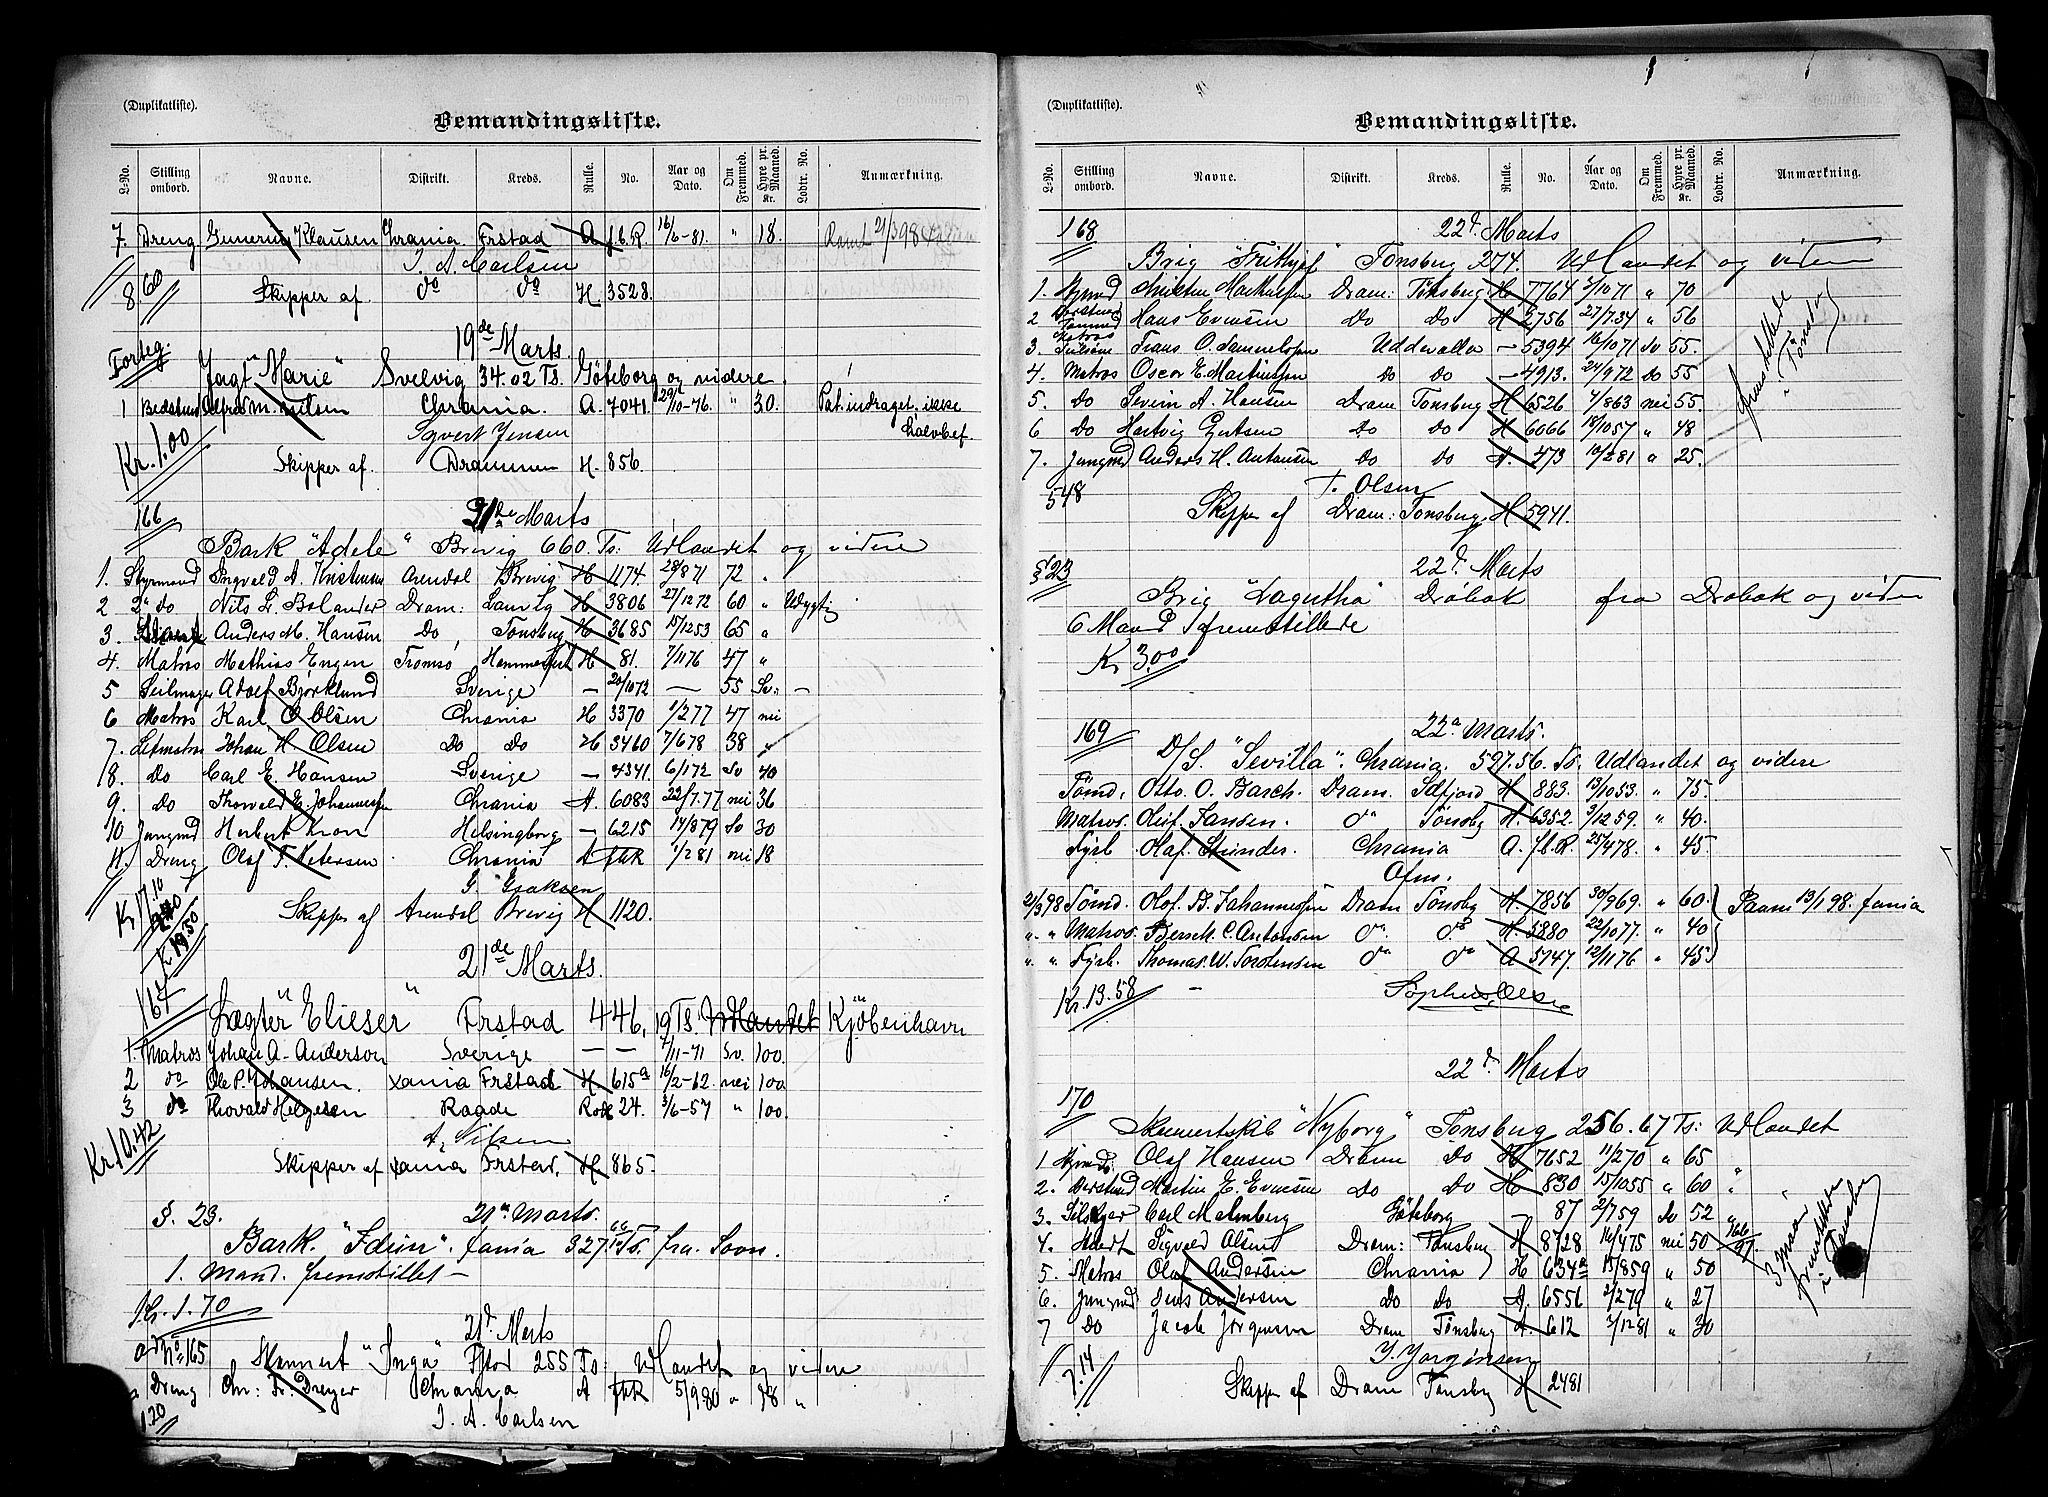 (Duplikatliste).
Bemandingsliste.
L-No. Stilling ombord. Navne. Distrikt. Kreds. Rulle. No. Aar og Dato. Om Fremmed. Hyre pr. Maaned. Kr. Lodtr. No. Anmærkning.
7. Dreng Klausen Chrania Frstad A f.t.R. 16/6-81. " 18.
J. A. Carlsen
8.60 Skipper af do do H. 3528.
19de Marts.
Forteg.
Jagt "Marie" Svelvig 34.02 Ts. Göteborg og videre.
1 Bedstmd Alfred M. Nilsen Chrania. A. 7041. 29/10-76. " 30. Pat. indraget. ikke halvbef.
Kr. 1.00
Syvert Jensen
Skipper af. Drammen H. 856.
166
21de Marts
Bark "Adele" Brevig 660. Ts: Udlandet og videre
1. Styrmand Ingvald A. Kristensen Arendal Brevig H 1174. 29/871 72 "
2 2n do Nils L. Bolander Dram: Laurvg H 3806 27/1272 60 " Udygtig
3. Anders M. Hansen Do Tonsberg H 3685 15/1253 65 "
4. Matros Mathias Engen Tromsö Hammerfest H 81. 7/1176 47 "
5 Seilmager Adolf Björklund Sverige — 20/1072 — 55 Sv: —
6 Matros Karl O. Olsen Chrania H 3370 1/277 47 nei
7. Letmatros Johan H. Olsen Do Do H 3460 7/678 38 "
8. Do Carl E. Hansen Sverige — 4341. 6/172 Sv 40
9. do Thorvald E. Johannessen Chrania A. 6083 22/7.77 nei 36
10 Jungmd Herbert Kron Helsingborg — 6215 14/879 Sv 30
11. Dreng Olaf F. Petersen Chrania A ftR 1/281 nei 18
G. Isaksen
Kr 17.10
2.40
Kr 19.50
Skipper af Arendal Brevig H 1120.
21de Marts.
167
Lægter "Elieser" Frstad 446,19 Ts. Udlandet Kjöbenhavn
1. Matros Johan A. Anderson Sverige — — 7/11-71 Sv. 100.
2 do Ole P. Johansen. Xania Frstad H. 615a 16/2-62. nei 100
3 do Thorvald Helgesen Raade Rode 24. 3/6-57 " 100.
A. Nilsen
Kr 10.42
Skipper af Xania Frstad. H 865.
§. 23. 21de Marts.
Bark. "Idun". fania 327 Ts. fra. Soon.
1. Mand. fremstillet —
Kr. 1.70
21d Marts
ad No 165 Skonnert "Inga" Fstad 255 Ts: Udlandet og videre
Dreng Chr: Fr. Dreyer Chrania A ftR 5/980 " 18 "
1.20
J. A. Carlsen
(Duplikatliste).
Bemandingsliste.
L-No. Stilling ombord. Navne. Distrikt. Kreds. Rulle. No. Aar og Dato. Om Fremmed. Hyre pr. Maaned. Kr. Lodtr. No. Anmærkning.
168 22d Marts
Brig "Frithjof" Tonsberg 274. Udlandet og videre
1. Styrmd Dram: Tönsberg H 7764 2/1071 " 70
2 Hans Evensen Do Do H 2756 27/734 " 56
3. Frans O. Samuelsson Uddevalla — 5394 16/1071 do 55.
4. Matros Oscar E. Martinsson Do Do — 4913. 24/972 Do 55
5. Do Severin A. Hansen Dram Tonsberg H 6526 4/863 nei 55.
6 Do Hartvig Gjertsen Do Do H 6066 18/1057 " 48
7. Jungmd Anders H. Antonsen Do Do A. 473 10/281 " 25.
Fremstillede i Tönsberg
T. Olsen
5.48 Skipper af Dram: Tonsberg H 5941.
§ 23 22d Marts
Brig "Lagutha" Dröbak fra Drobak og viden
6 Mand fremstillede
Kr 3.00
169 22d Marts.
D/S. "Sevilla". Chrania. 597.56. Ts. Udlandet og videre
Tömd. Otto. O. Basch. Dram. Sdfjord H. 883. 13/1053. " 75.
Matros. Oluf Jansen. do Tönsbg H. 6352. 3/1259. " 40.
Fyrb Olaf. Chrania A. f.t.R. 25/478. " 45.
Ofm.
21/3 98 Tömd. Olof B. Johannessen Dram Tönsbg H. 7856 30/969. " 60 Paam 13/1 98. fania
" " Matros. C. Antonsen do. do. H. 5880 22/1077. " 40
" " Fyrb. Thomas. W. Torstensen do do A 5747. 12/1176 " 45
Kr. 13.58 — Sophus Olsen
22d Marts
170
Skonnertskib "Nyborg" Tonsberg 256.67 Ts: Udlandet
1 Styrmd. Olaf Hansen Dram Do H 7652 11/270 " 65
2. Martin E. Evensen Do Do H 830 15/1055 " 60 "
3. Carl Malmberg Göteborg — 87 2/759 do 52 "
4. Sigvald Olsen Dram: Tonsberg H 8728 16/475 nei 50
5. Matros Olaf Andersen Chrania H 634a 15/859 " 50
6. Jungmd Jens Andersen Do Do A. 6556 2/279 " 27
7 Do Jacob Jörgensen Dram Tönsberg A. 612 3/1281 " 30
3 Mand fremstillet i Tönsberg
Y. Jorgensen
7.14 Skipper af Dram Tonsberg H 2481